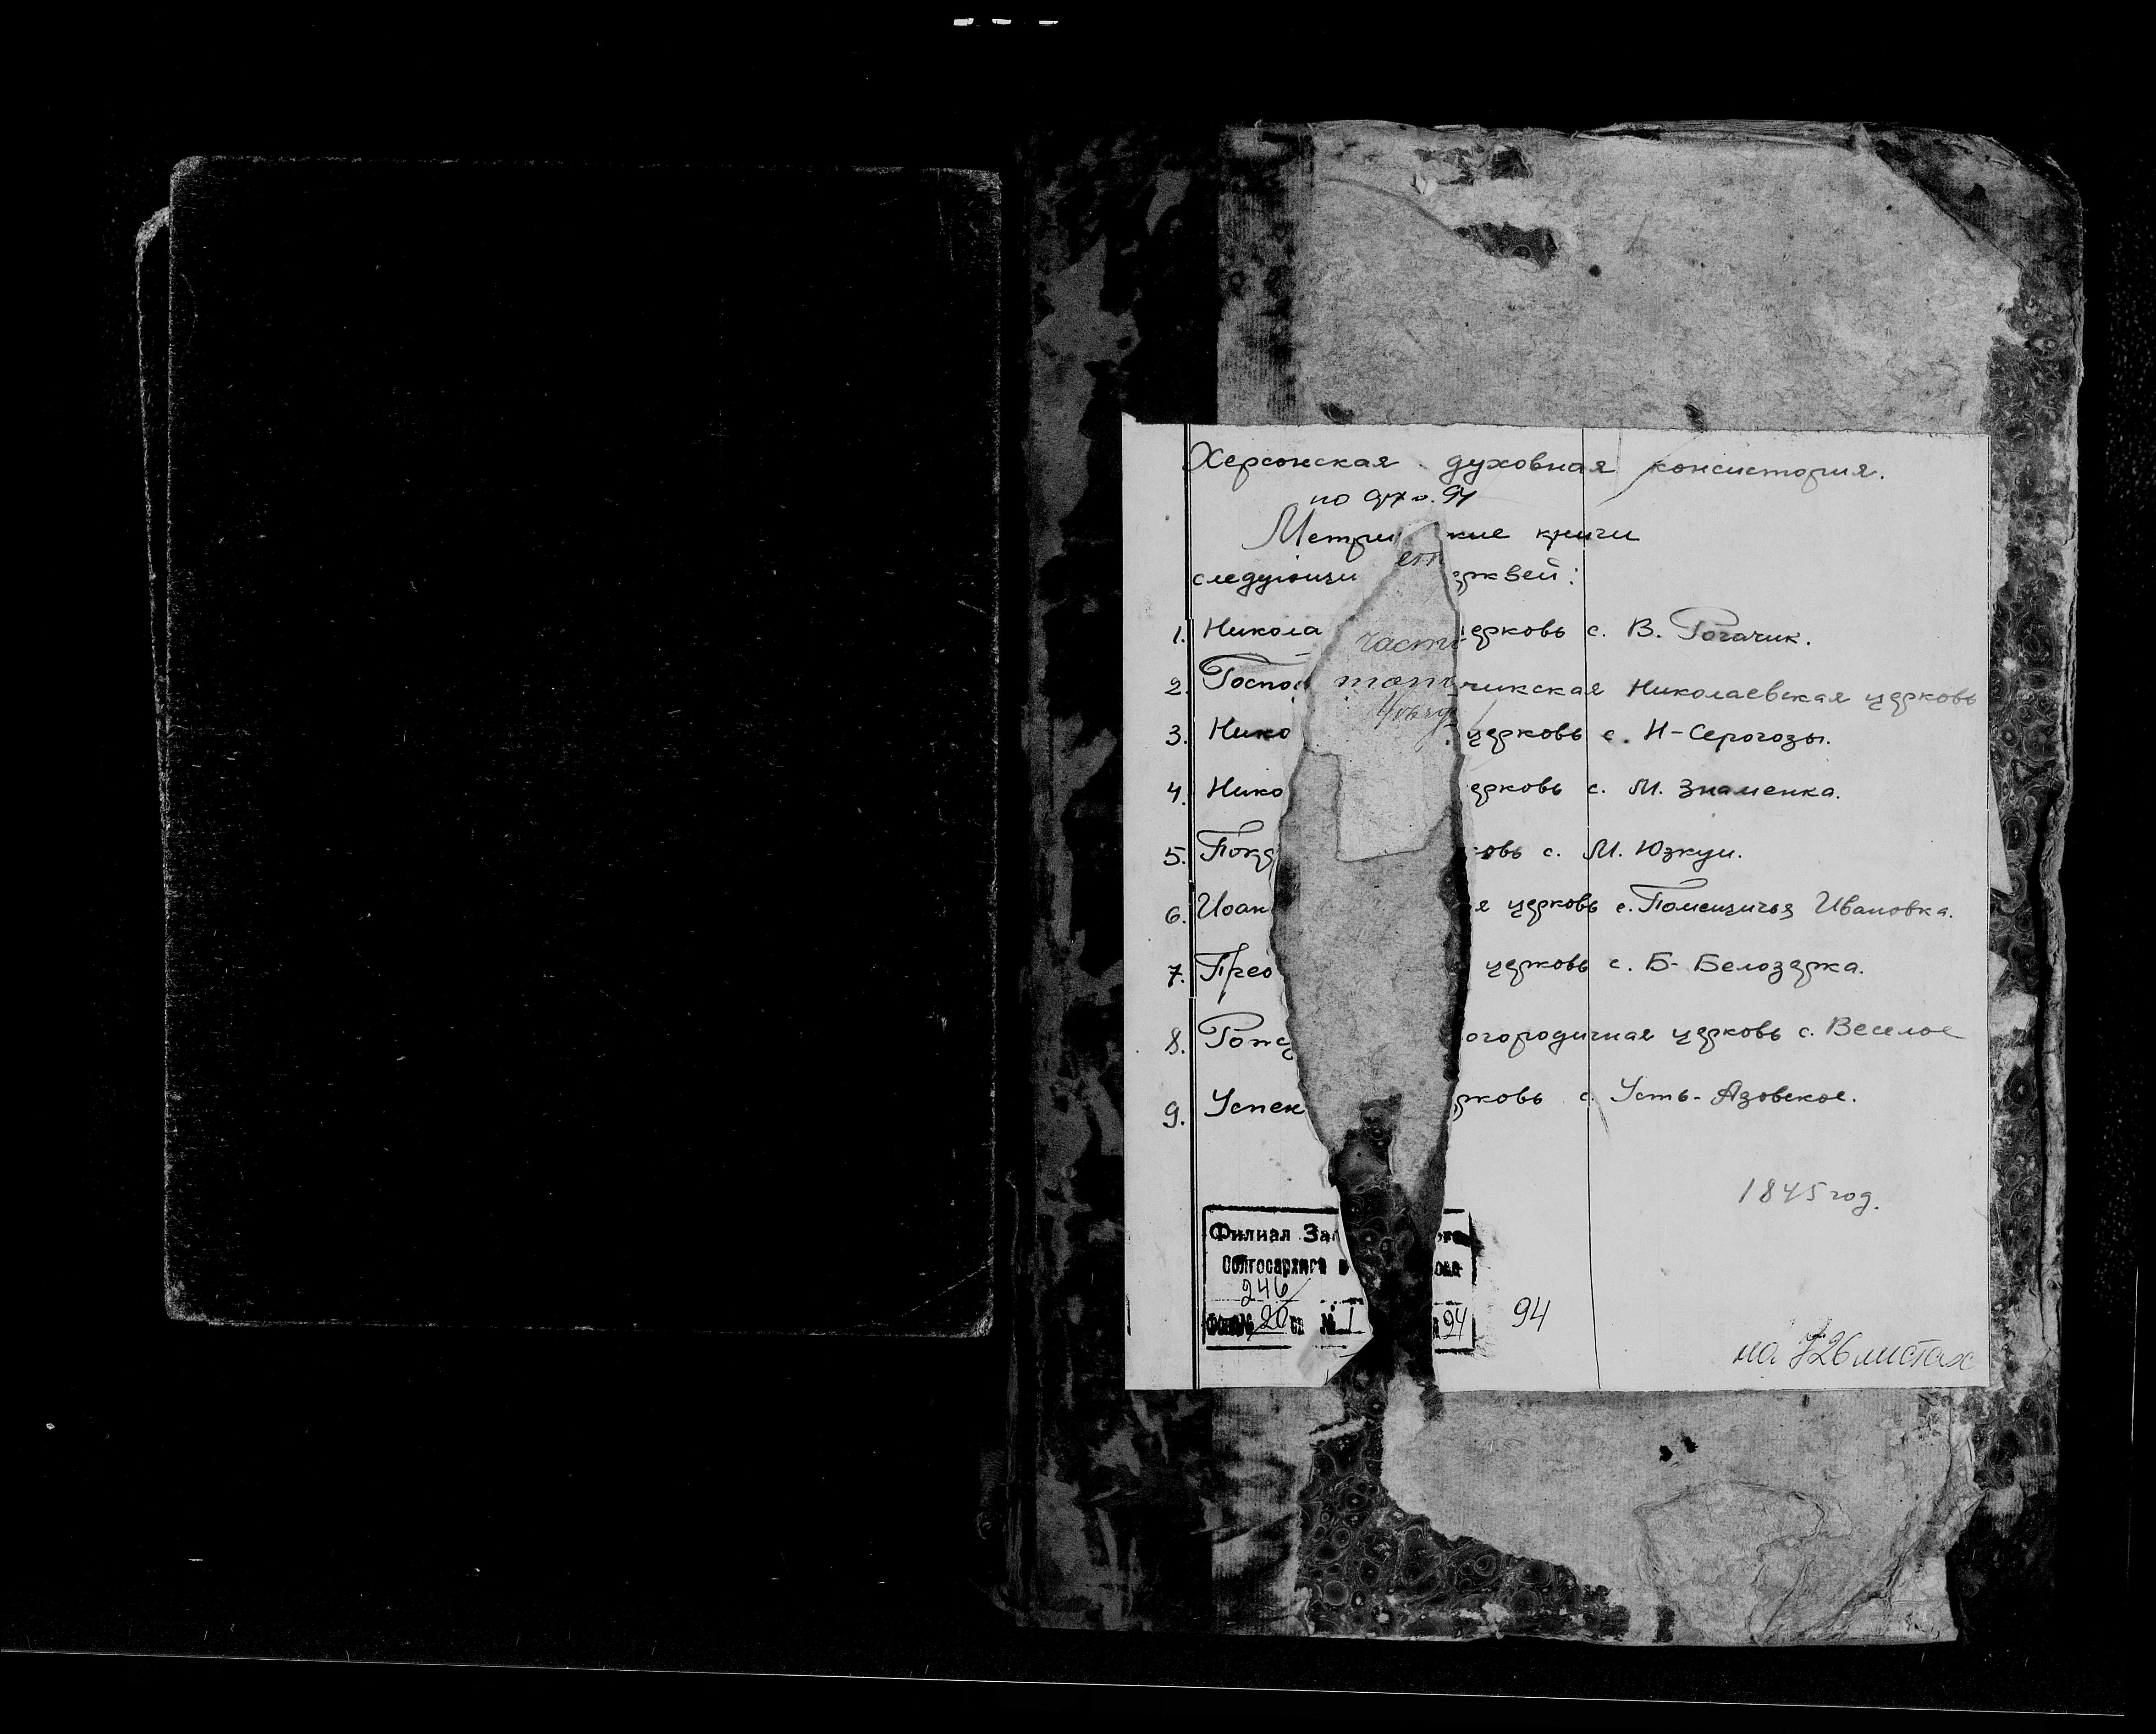 Херсонская духовная консистория.
94
Метри кие книги
следующи ерквей:
1. Никола ерковь с. В. Рогачик.
2. Госпо чикская Николаевская церковь
3. Нико церковь с. Н-Серогозы.
4. Нико ерковь с. М. Знаменка.
5. Покр овь с. М. Юзкуи.
6. Иоан я церковь с. Помещичья Ивановка.
7. Прео церковь с. Б-Белозерка.
8. Рожд огородичная церковь с. Веселое
9. Успен рковь с. Усть-Азовское.
1845 год.
Филиал За
Облгосархива в
246
20 № 1 94
94
на 726 листах